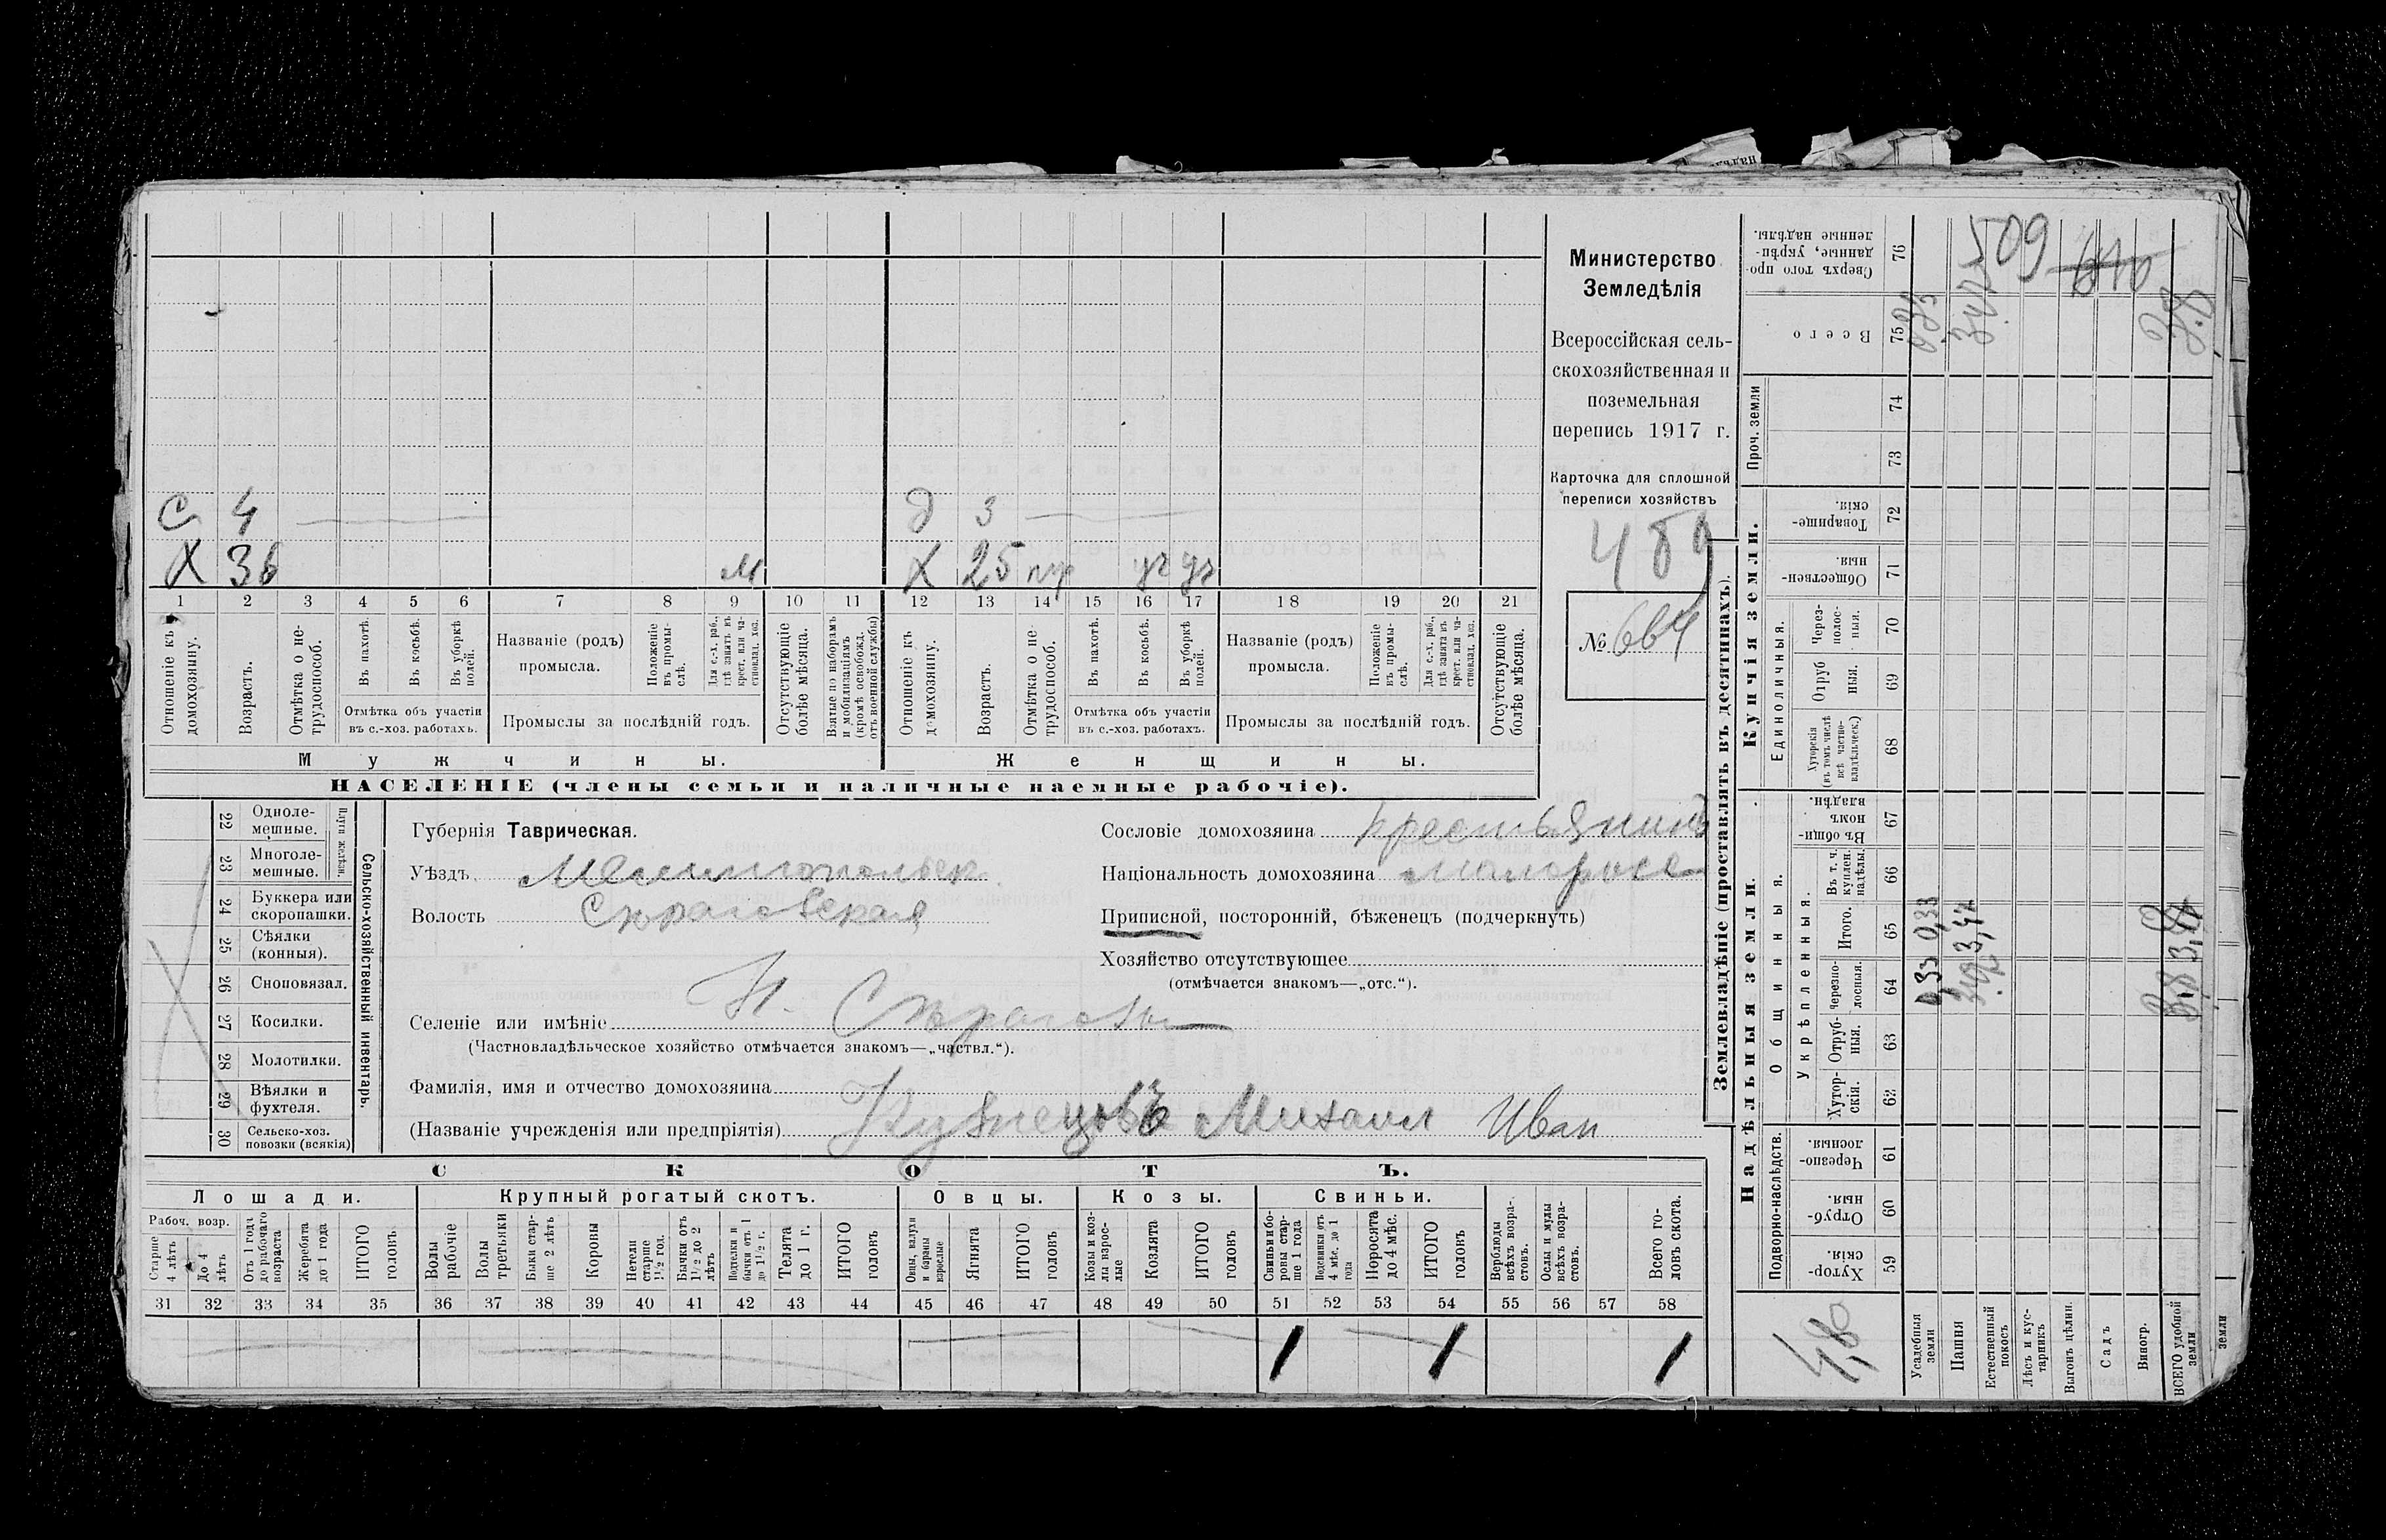 Министерство
Земледѣлія
Всероссійская сель-
скохозяйственная и
поземельная
перепись 1917 г.
Карточка для сплошной
переписи хозяйствъ
489
№ 664
С 4 д 3
Х 36 м Х 25
1 2 3 4 5 6 7 8 9 10 11 12 13 14 15 16 17 18 19 20 21
Отношеніе къ домохозяину.
Возрастъ.
Отмѣтка о не-трудоспособ.
Въ пахотѣ.
Въ косьбѣ.
Въ уборкѣ полей.
Отмѣтка объ участіи
въ с.-хоз. работахъ.
Названіе (родъ)
промысла.
Положеніе въ промы-слѣ.
Для с.-х. раб., гдѣ занятъ въ крест. или ча-стновлад. хоз.
Промыслы за послѣдній годъ.
Отсутствующіе болѣе мѣсяца.
Взятые по наборамъ и мобилизаціямъ (кромѣ освобожд. отъ военной службы)
Отношеніе къ домохозяину.
Возрастъ.
Отмѣтка о не-трудоспособ.
Въ пахотѣ.
Въ косьбѣ.
Въ уборкѣ полей.
Отмѣтка объ участіи
въ с.-хоз. работахъ.
Названіе (родъ)
промысла.
Положеніе въ промы-слѣ.
Для с.-х. раб., гдѣ занята въ крест. или ча-стновлад. хоз.
Промыслы за послѣдній годъ.
Отсутствующіе болѣе мѣсяца.
Мужчины. Женщины.
НАСЕЛЕНІЕ (члены семьи и наличные наемные рабочіе).
Сельско-хозяйственный инвентарь.
Плуги желѣзн.
22 Одноле-мешные.
23 Многоле-мешные.
24 Буккера или скоропашки.
25 Сѣялки (конныя).
26 Сноповязал.
27 Косилки.
28 Молотилки.
29 Вѣялки и фухтеля.
30 Сельско-хоз. повозки (всякія)
Губернія Таврическая.
Уѣздъ Мелитопольск.
Волость Сѣрогозская
Селеніе или имѣніе Н. Сѣрогозы
(Частновладѣльческое хозяйство отмѣчается знакомъ—„частвл.“).
Фамилія, имя и отчество домохозяина
(Названіе учрежденія или предпріятія) Кузнецовъ Михаил Иван
Сословіе домохозяина крестьянинъ
Національность домохозяина малоросс
Приписной, посторонній, бѣженецъ (подчеркнуть)
Хозяйство отсутствующее
(отмѣчается знакомъ—„отс.“).
СКОТЪ.
Лошади. Крупный рогатый скотъ. Овцы. Козы. Свиньи.
Рабоч. возр.
Старше 4 лѣтъ
До 4 лѣтъ
Отъ 1 года до рабочаго возраста
Жеребята до 1 года
ИТОГО головъ
Волы рабочіе
Волы третьяки
Быки стар-ше 2 лѣтъ
Коровы
Нетели старше 1½ год.
Бычки отъ 1½ до 2 лѣтъ
Подтелки и бычки отъ 1 до 1½ г.
Телята до 1 г.
ИТОГО головъ
Овцы, валухи и бараны взрослые
Ягнята
ИТОГО головъ
Козы и коз-лы взрос-лые
Козлята
ИТОГО головъ
Свиньи и бо-ровы стар-ше 1 года
Подсвинки отъ 4 мѣс. до 1 года
Поросята до 4 мѣс.
ИТОГО головъ
Верблюды всѣхъ возра-стовъ.
Ослы и мулы всѣхъ возра-стовъ.
Всего го-ловъ скота.
31 32 33 34 35 36 37 38 39 40 41 42 43 44 45 46 47 48 49 50 51 52 53 54 55 56 57 58
1 1 1
Землевладѣніе (проставлять въ десятинахъ).
Надѣльныя земли.
Подворно-наслѣдств.
59 Хутор-скія.
60 Отруб-ныя.
61 Черезпо-лосныя.
Общинныя.
Укрѣпленныя.
62 Хутор-скія.
63 Отруб-ныя.
64 Черезпо-лосныя.
65 Итого.
66 Въ т. ч. куплен. надѣлы.
67 Въ общин-номъ владѣн.
Купчія земли.
Единоличныя.
68 Хуторскія (въ томъ числѣ всѣ частно-владѣльческ.)
69 Отруб ныя.
70 Через-полос-ныя.
71 Обществен-ныя.
72 Товарище-скія.
Проч. земли
73 74
75 Всего
76 Сверхъ того про-данные, укрѣп-ленные надѣлы.
Усадебныя земли
Пашня
Естественный покосъ
Лѣсъ и кус-тарникъ
Выгонъ цѣлин.
Садъ
Виногр.
ВСЕГО удобной земли
земли
509
4,80
0,33
3,47